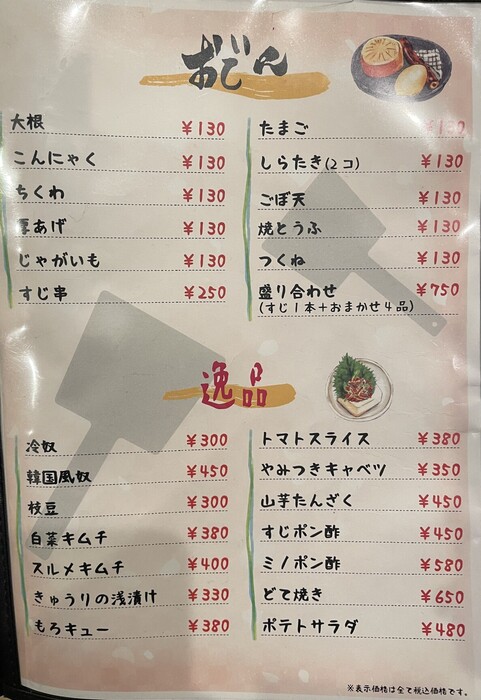 おでん
大根 ¥130
こんにゃく ¥130
ちくわ ¥130
厚あげ ¥130
じゃがいも ¥130
すじ串 ¥250
たまご ¥130
しらたき(2コ) ¥130
ごぼ天 ¥130
焼とうふ ¥130
つくね ¥130
盛り合わせ ¥750
(すじ1本+おまかせ4品)
逸品
冷奴 ¥300
韓国風奴 ¥450
枝豆 ¥300
白菜キムチ ¥380
スルメキムチ ¥400
きゅうりの浅漬け ¥330
もろキュー ¥380
トマトスライス ¥380
やみつきキャベツ ¥350
山芋たんざく ¥450
すじポン酢 ¥450
ミノポン酢 ¥580
どて焼き ¥650
ポテトサラダ ¥480
※表示価格は全て税込価格です。